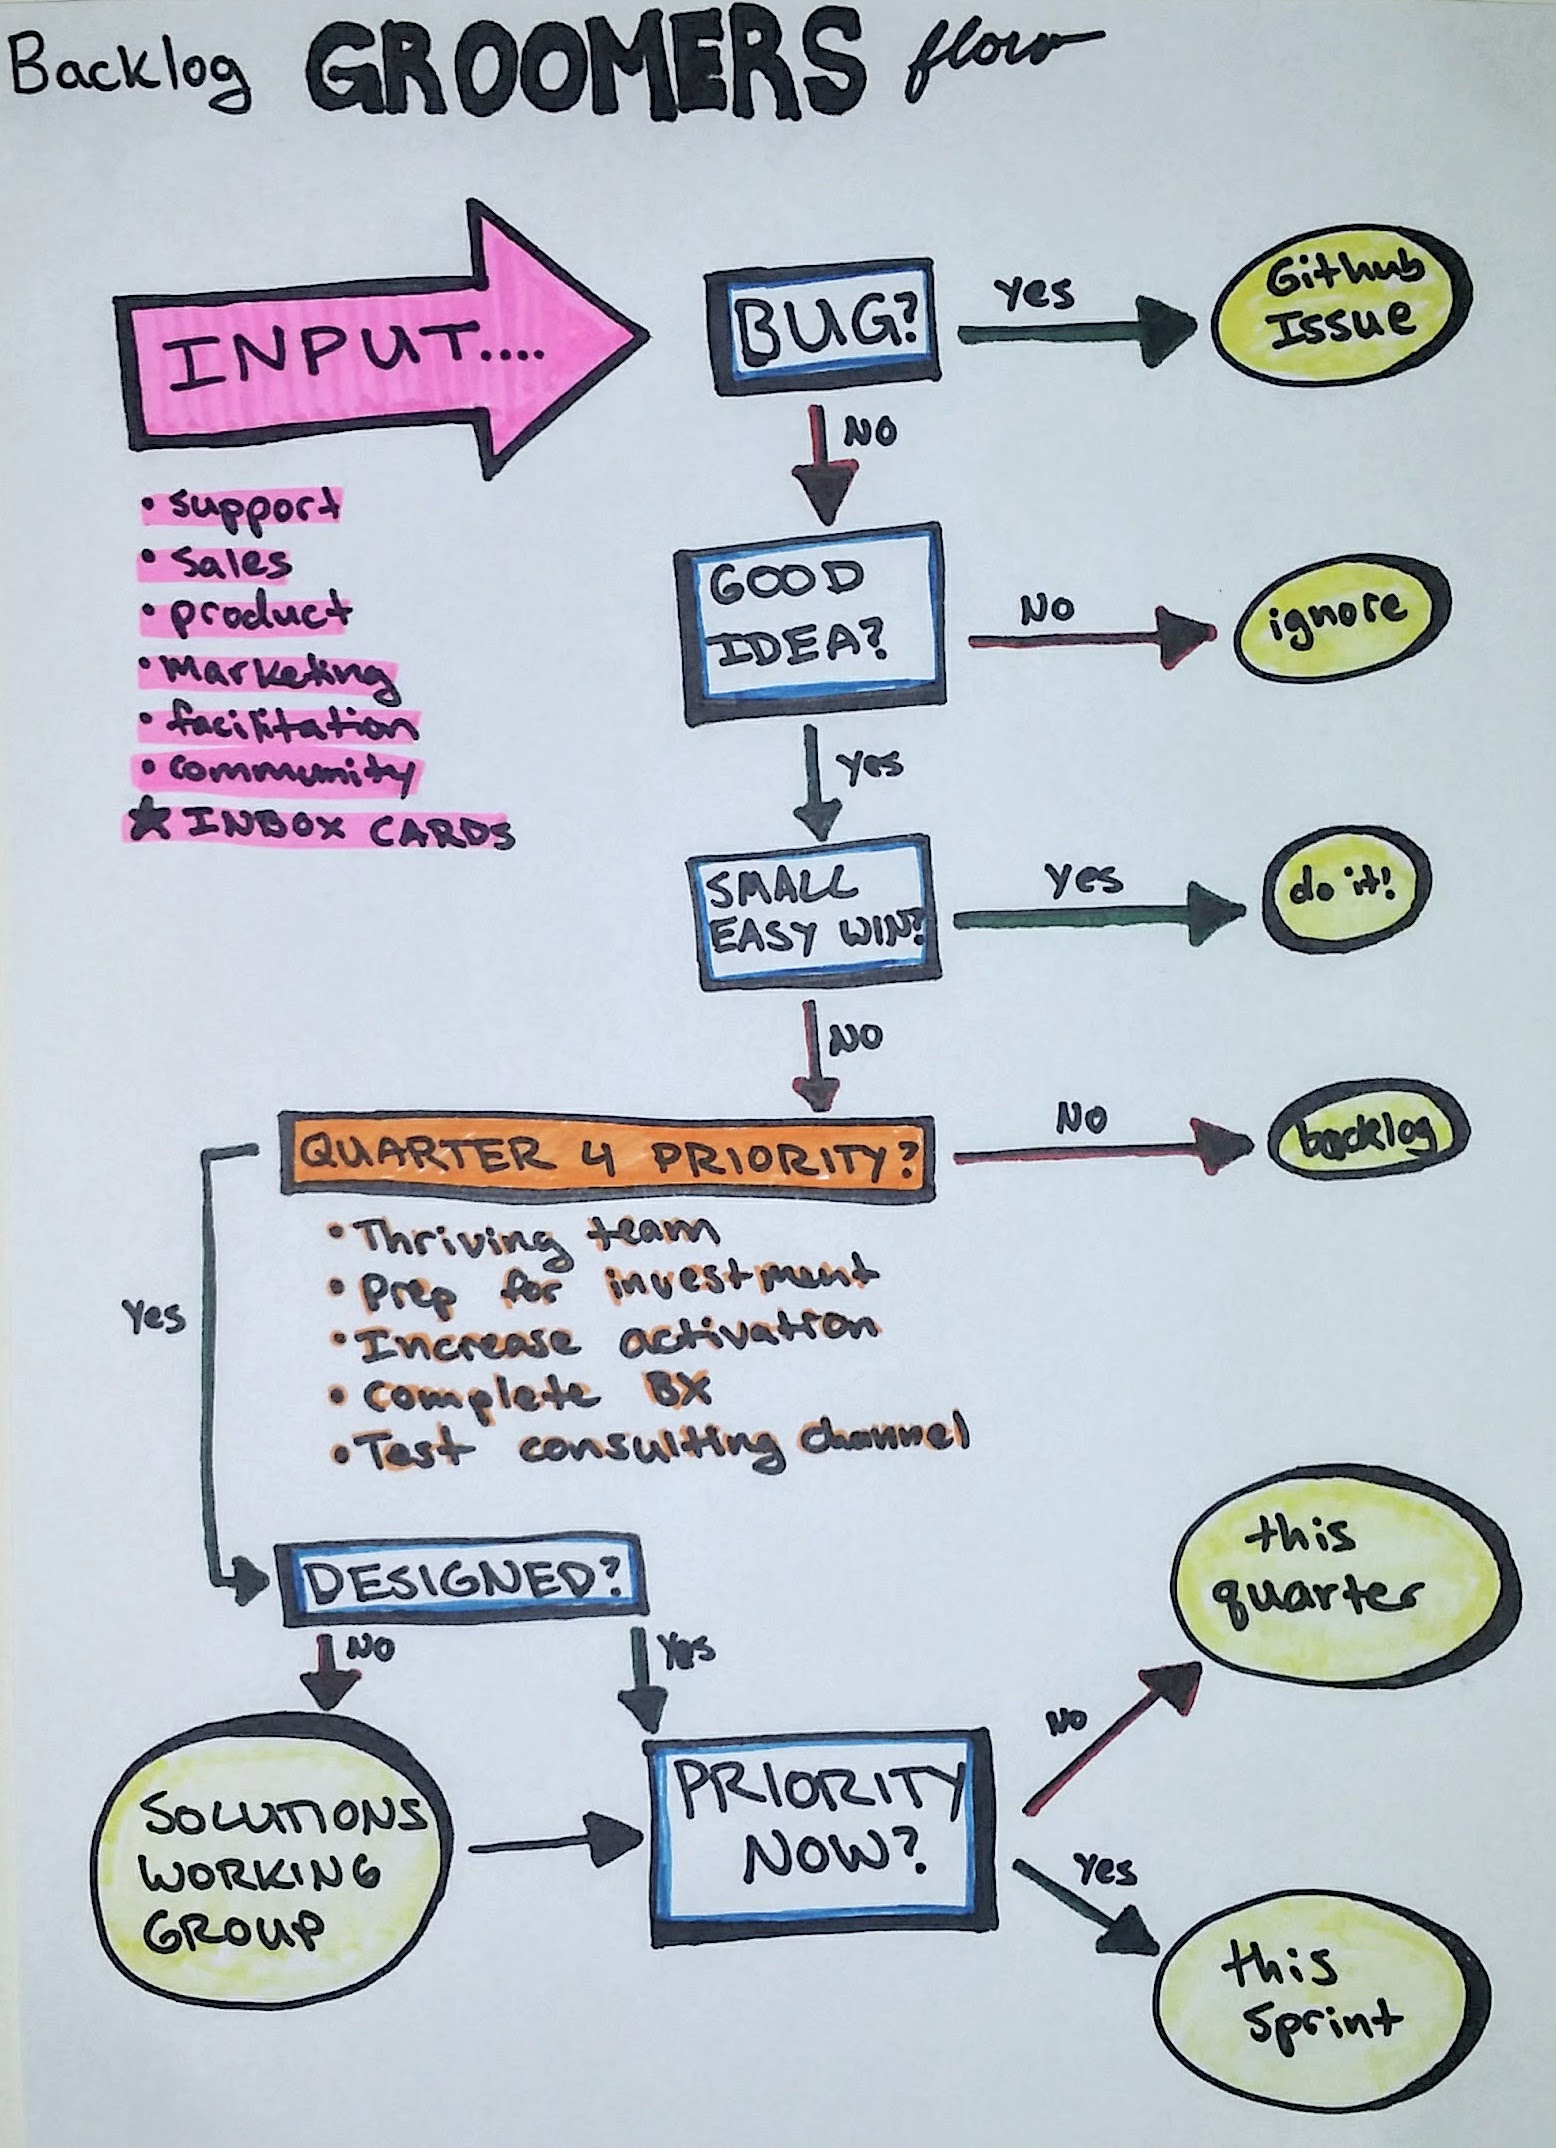 Backlog GROOMERS flow
INPUT....
• support
• sales
• product
• Marketing
• facilitation
• community
★ INBOX CARDS
BUG?
Yes
Github
Issue
NO
GOOD
IDEA?
NO
ignore
Yes
SMALL
EASY WIN?
Yes
do it!
NO
QUARTER 4 PRIORITY?
NO
backlog
• Thriving team
• Prep for investment
• Increase activation
• Complete BX
• Test consulting channel
Yes
DESIGNED?
NO
Yes
SOLUTIONS
WORKING
GROUP
PRIORITY
NOW?
NO
this
quarter
Yes
this
sprint